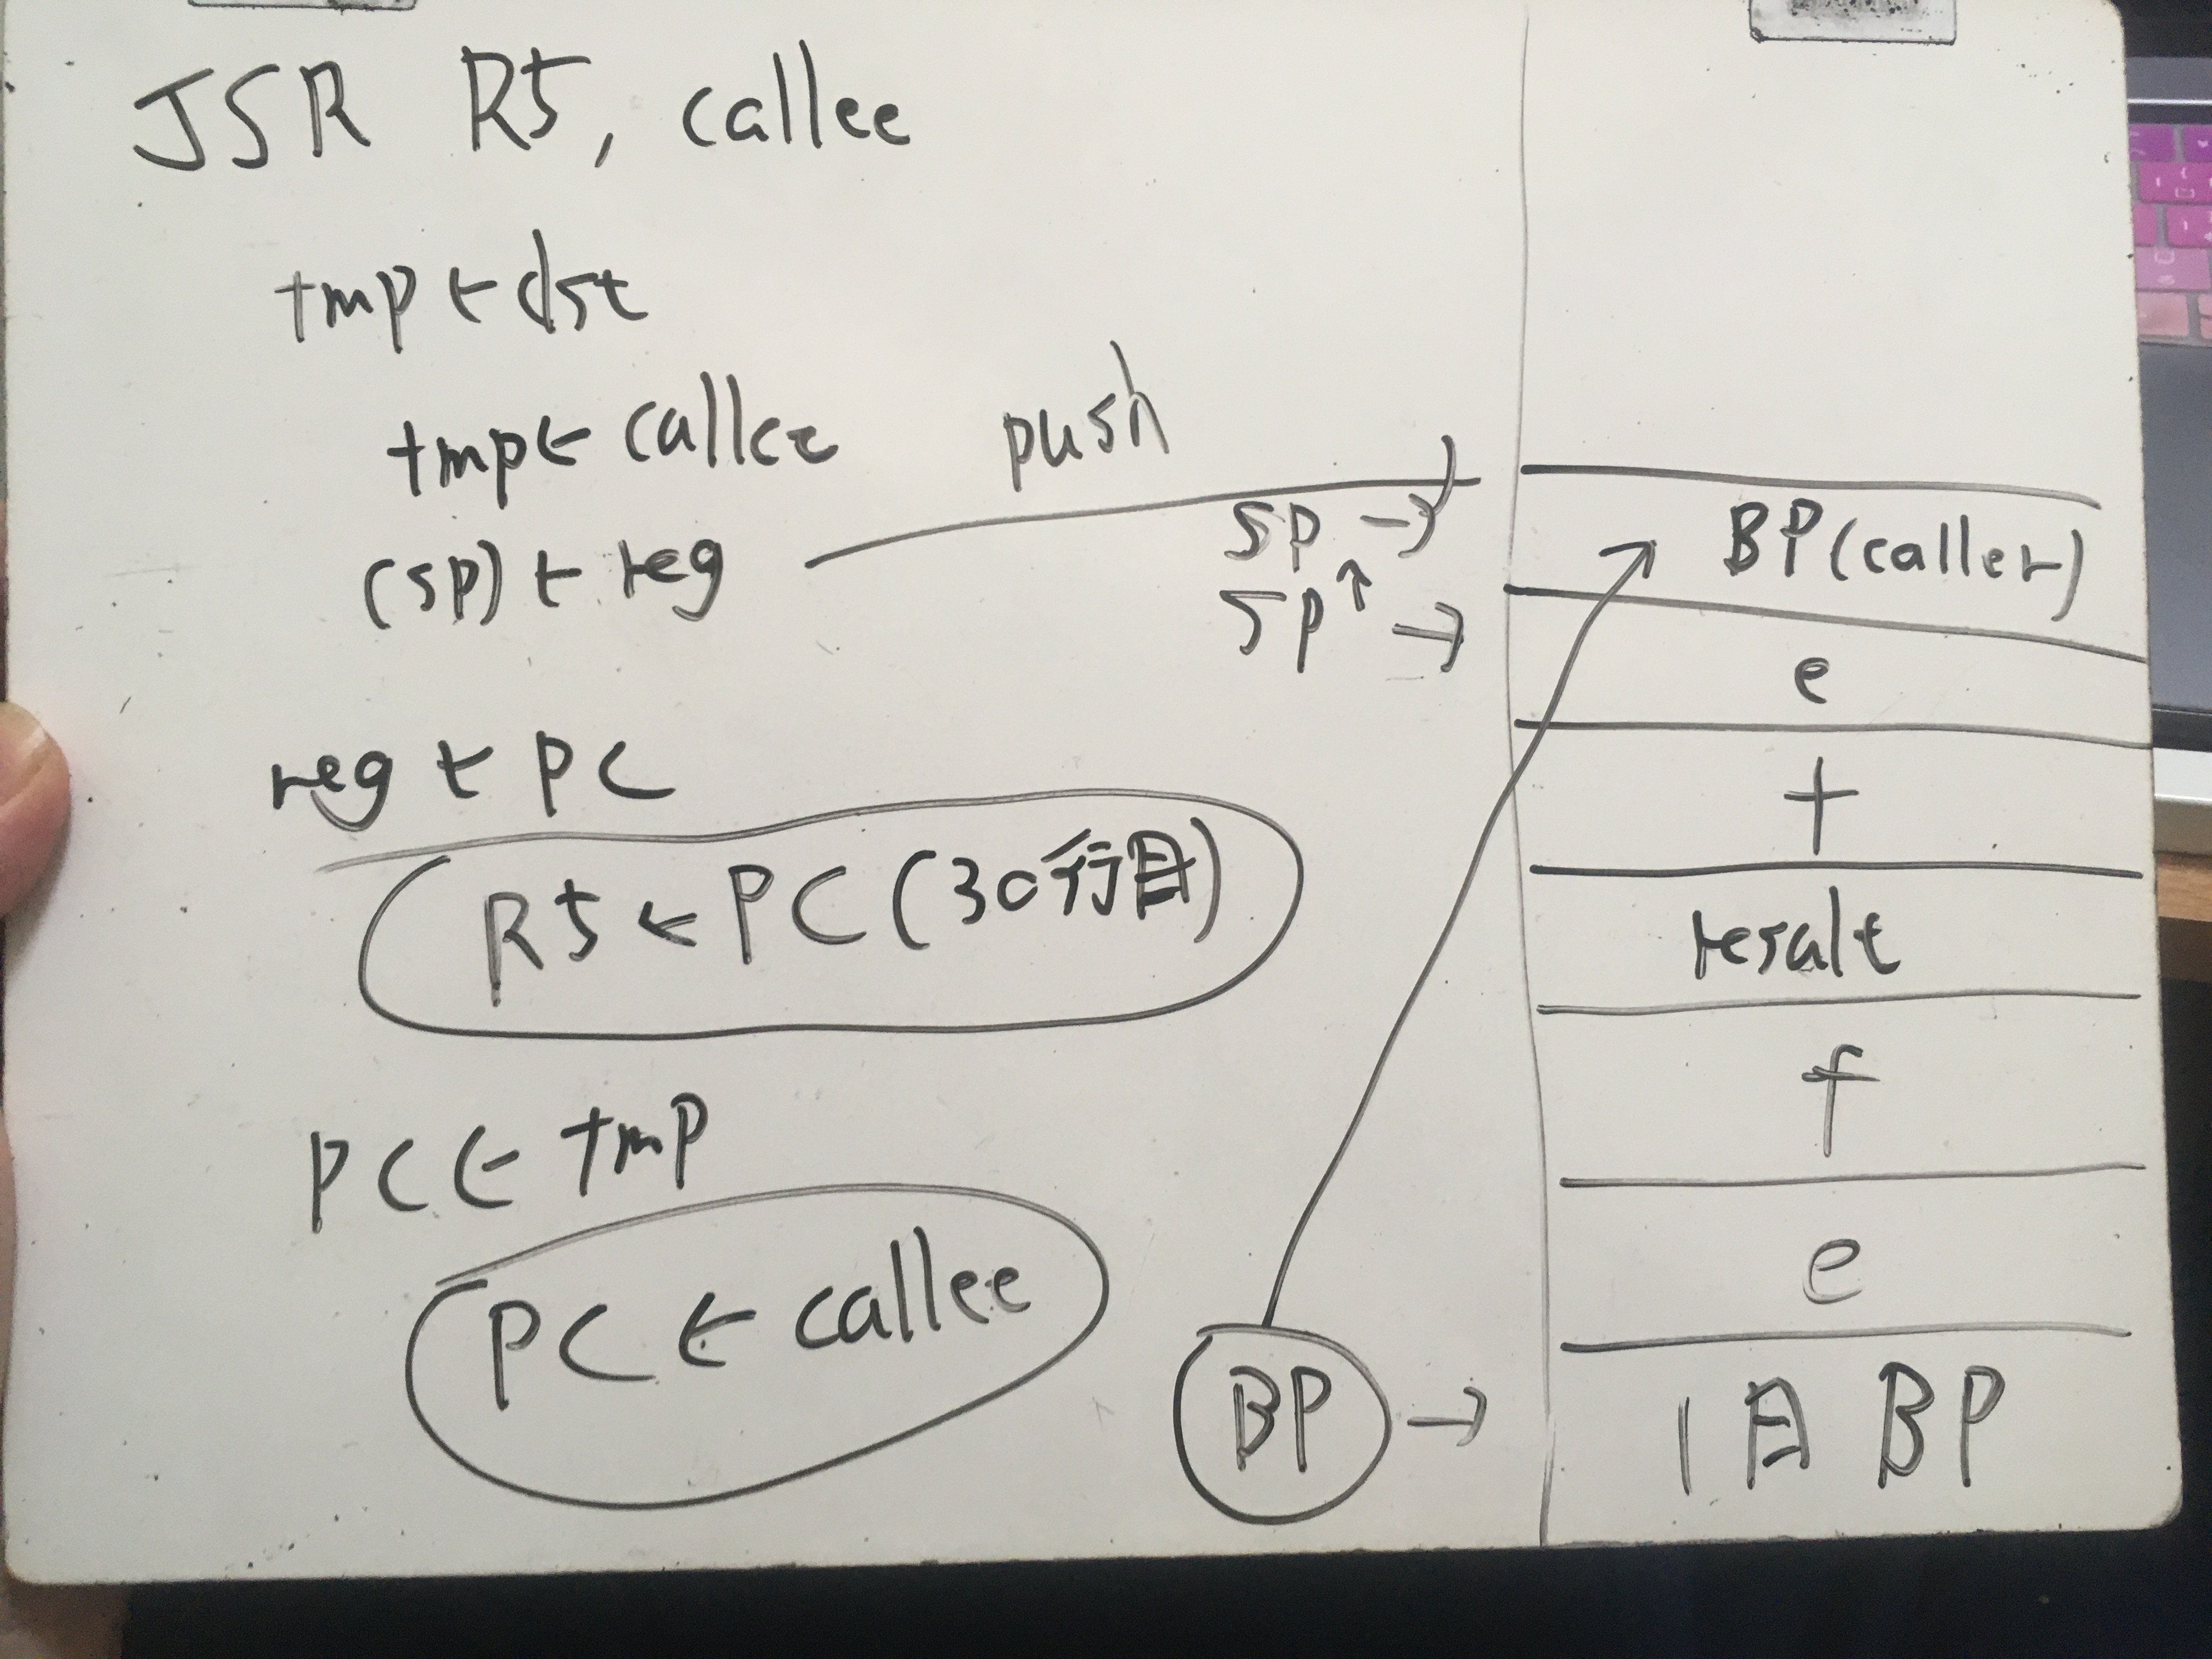 JSR R5, callee
tmp ← dst
tmp ← callee
push
(SP) ← reg
SP →
SP ↑ →
reg ← PC
R5 ← PC (30行目)
PC ← tmp
PC ← callee
BP →
BP (caller)
e
+
resalt
f
e
旧 BP